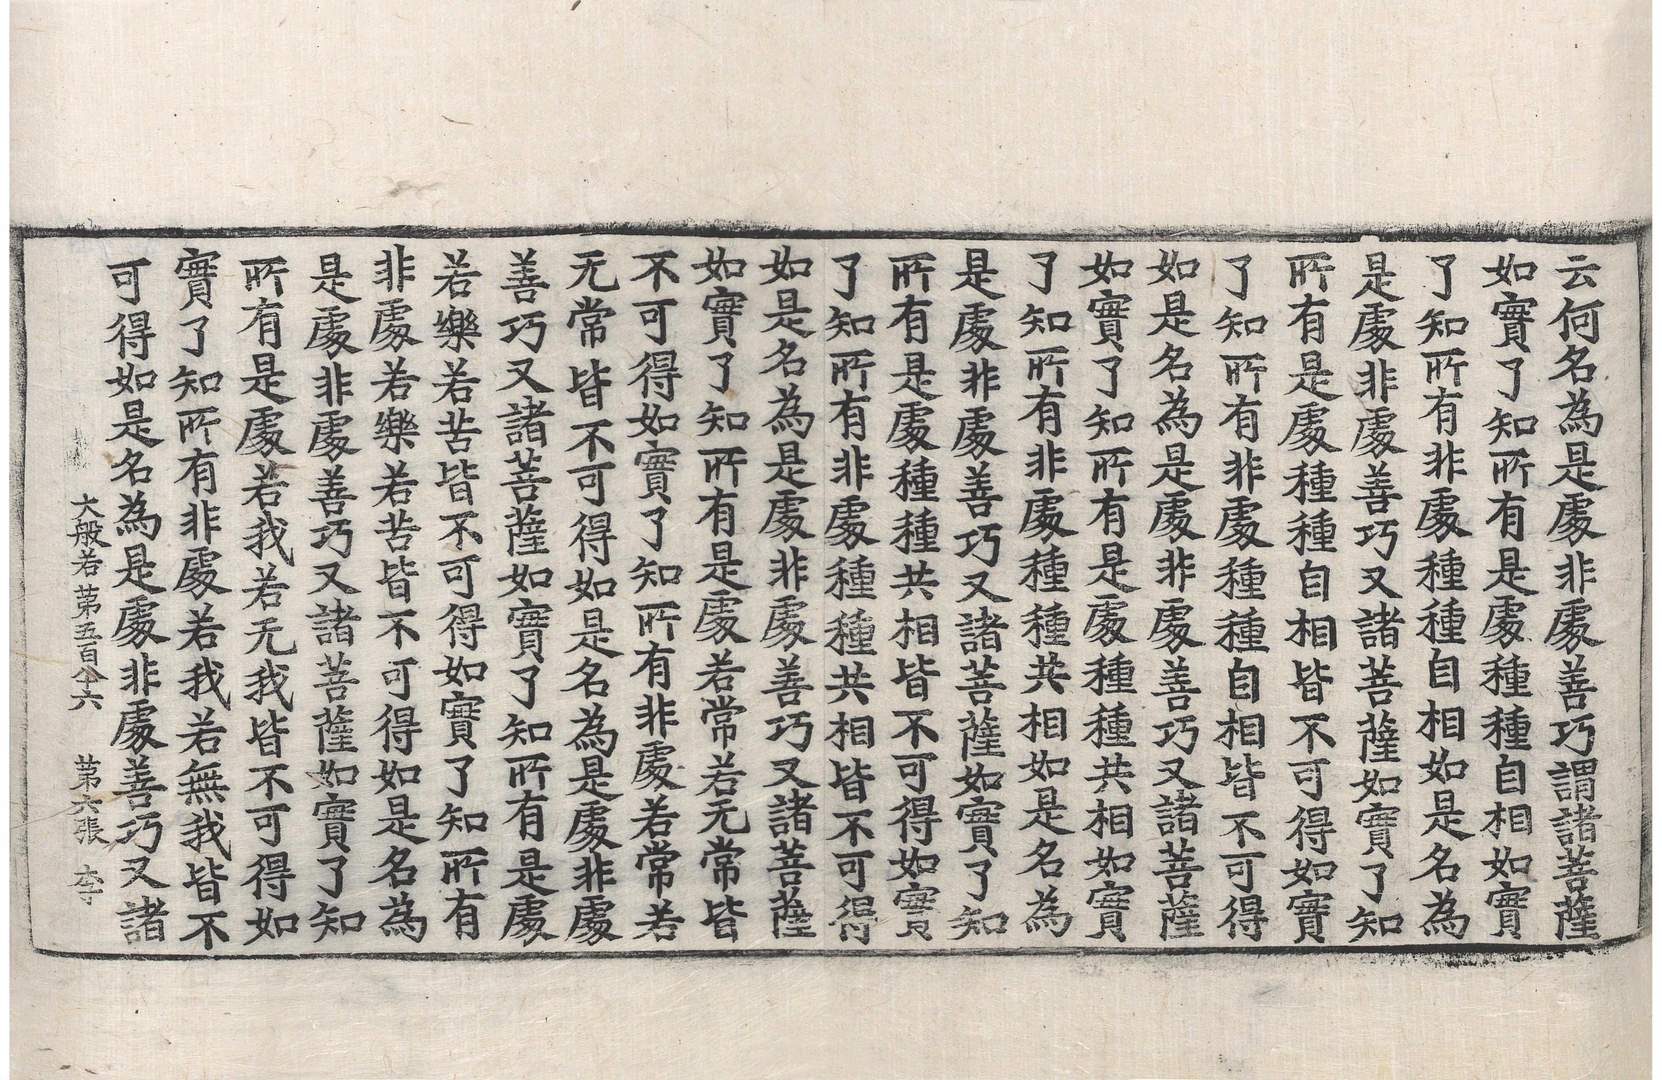 云何名為是處非處善巧謂諸菩薩
如實了知所有是處種種自相如實
了知所有非處種種自相如是名為
是處非處善巧又諸菩薩如實了知
所有是處種種自相皆不可得如實
了知所有非處種種自相皆不可得
如是名為是處非處善巧又諸菩薩
如實了知所有是處種種共相如實
了知所有非處種種共相如是名為
是處非處善巧又諸菩薩如實了知
所有是處種種共相皆不可得如實
了知所有非處種種共相皆不可得
如是名為是處非處善巧又諸菩薩
如實了知所有是處若常若无常皆
不可得如實了知所有非處若常若
无常皆不可得如是名為是處非處
善巧又諸菩薩如實了知所有是處
若樂若苦皆不可得如實了知所有
非處若樂若苦皆不可得如是名為
是處非處善巧又諸菩薩如實了知
所有是處若我若无我皆不可得如
實了知所有非處若我若無我皆不
可得如是名為是處非處善巧又諸
大般若第五百八十六 第六張 李